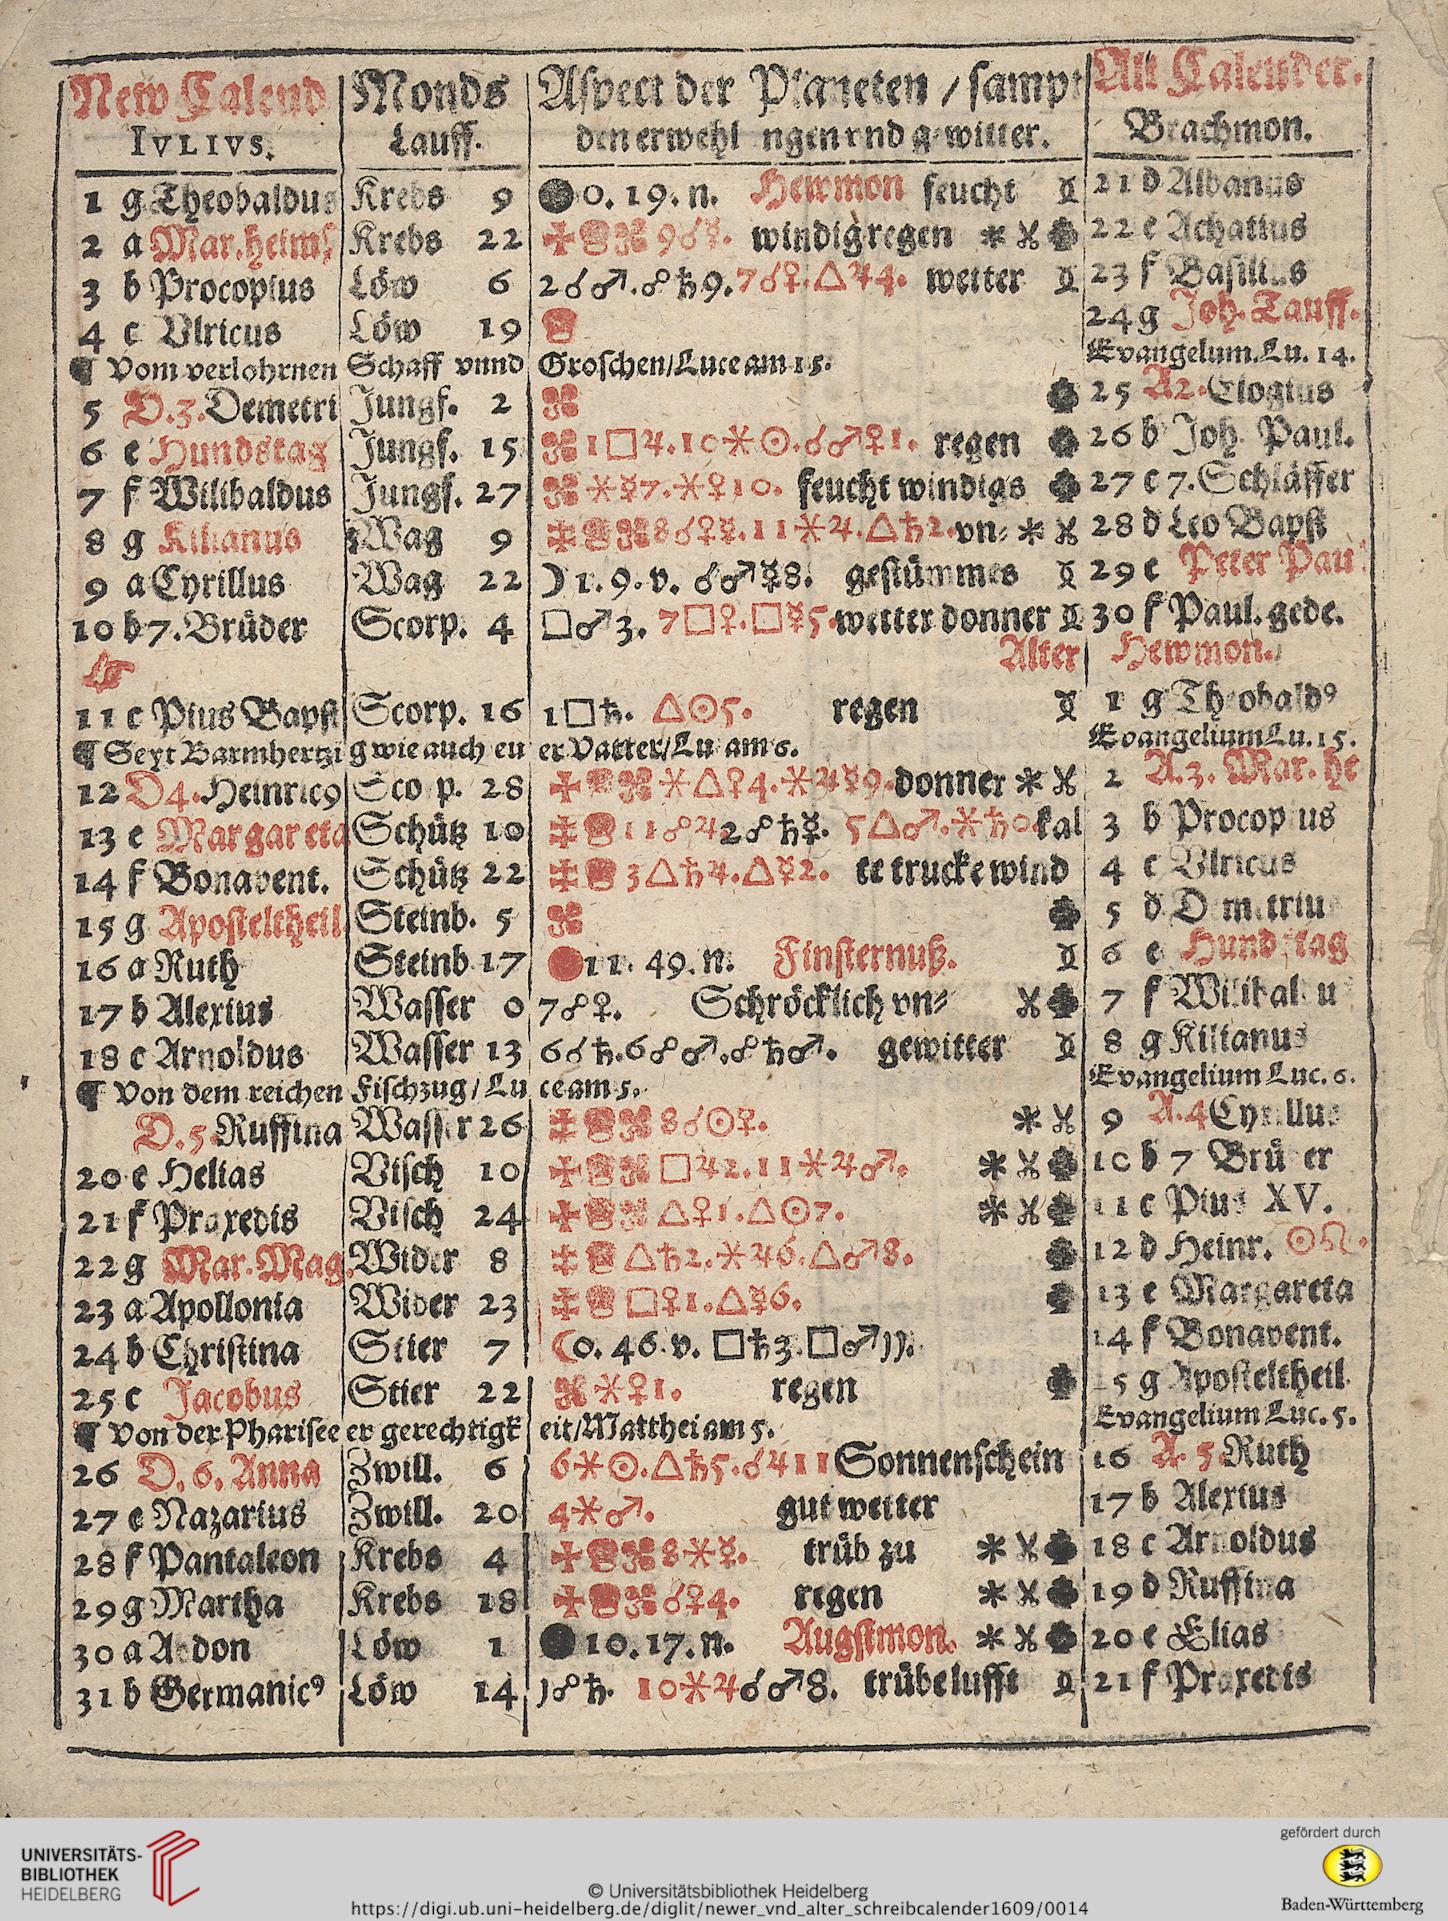 New Calend Monds Aspect der Planeten / sampt Alt Calender.
IVLIVS. Lauff. den erwehl ngen vnd gewitter. Brachmon.
1 g Theobaldus Krebs 9 ●0. 19. n. Hewmon feucht 21 d Albanus
2 a Mar. heims Krebs 22 9☌☿. windig regen * 22 e Achatius
3 b Procopius Löw 6 2☌♂.☍♄9.7☌♀.△♃4. wetter 23 f Basilius
4 c Vlricus Löw 19 24 g Joh. Tauff.
¶ Vom verlohrnen Schaff vnnd Groschen/Luce am 15. Evangelum. Lu. 14.
5 D.3. Demetri Jungf. 2 25 A2. Elogius
6 e Hundstag Jungf. 15 1□♃.10⚹☉.☌♂♀1. regen 26 b Joh. Paul.
7 f Wilibaldus Jungf. 27 ⚹☿7.⚹♀10. feucht windigs 27 c 7. Schläffer
8 g Kilianus Wag 9 8☌♀☿.11⚹♃.△♄2. vn= * 28 d Leo Bapst
9 a Cyrillus Wag 22 ☽1. 9. v. ☌♂☿8. gestümmes 29 e Peter Pau
10 b 7. Brüder Scorp. 4 □♂3. 7□♀.□☿5. wetter donner 30 f Paul. gede.
☞ Alter Hewmon.
11 c Pius Bapst Scorp. 16 1□♄. △☉5. regen 1 g Theobald9
¶ Seyt Barmhertzi g wie auch eu er Vatter/Lu am 6. Evangelium Lu. 15.
12 D4. Heinric9 Sco p. 28 ⚹△♀4.⚹♃☿9. donner * 2 A.3. Mar. he
13 e Margareta Schütz 10 11☍♃2☍♄☿. 5△♂.⚹♄0. kal 3 b Procop us
14 f Bonavent. Schütz 22 3△♄4.△☿2. te trucke wind 4 c Vlricus
15 g Aposteltheil Steinb. 5 5 d D m triu
16 a Ruth Steinb 17 11. 49. n. Finsternuß. 6 e Hundstag
17 b Alexius Wasser 0 7☍♀. Schröcklich vn= 7 f Wilibal u
18 c Arnoldus Wasser 13 6☌♄.6☍♂.☍♄♂. gewitter 8 g Kilianus
¶ Von dem reichen Fischzug / Lu ce am 5. Evangelium Luc. 6.
D. 5. Ruffina Wasser 26 8☌☉♀. * 9 A.4 Cyrillus
20 e Helias Visch 10 □♃2.11⚹♃♂. * 10 b 7 Brü er
21 f Praxedis Visch 24 △♀1.△☉7. * 11 c Pius XV.
22 g Mar. Mag. Wider 8 △♄2.⚹♃6.△♂8. 12 d Heinr. ☉♌.
23 a Apollonia Wider 23 □♀1.△☿6. 13 e Margareta
24 b Christina Stier 7 ☾0. 46. v. □♄3.□♂11. 14 f Bonavent.
25 c Jacobus Stier 22 ⚹♀1. regen 15 g Aposteltheil
¶ Von der Pharisee er gerechtigk eit/Matthei am 5. Evangelium Luc. 5.
26 D. 6. Anna Zwill. 6 6⚹☉.△♄5.☌♃11 Sonnenschein 16 A. 5 Ruth
27 e Nazarius Zwill. 20 4⚹♂. gut wetter 17 b Alexius
28 f Pantaleon Krebs 4 8⚹☿. trüb zu * 18 c Arnoldus
29 g Martha Krebs 18 ☌♀4. regen * 19 d Ruffina
30 a A don Löw 1 ●10. 17. n. Augstmon. * 20 e Elias
31 b Germanic9 Löw 14 1☍♄. 10⚹♃☌♂8. trübe lufft 21 f Praxedis
UNIVERSITÄTS-
BIBLIOTHEK
HEIDELBERG
© Universitätsbibliothek Heidelberg
https://digi.ub.uni-heidelberg.de/diglit/newer_vnd_alter_schreibcalender1609/0014
gefördert durch
Baden-Württemberg